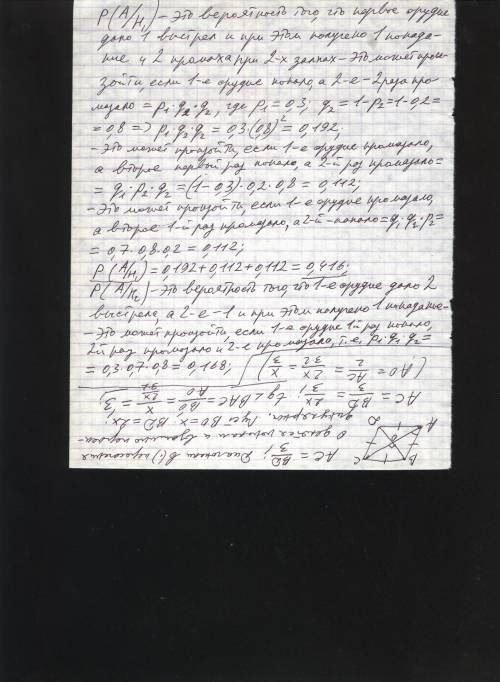 P(A/H₁) – это вероятность того, что первое орудие
дало 1 выстрел и при этом получено 1 попада-
ние и 2 промаха при 2-х залпах – это может прои-
зойти, если 1-е орудие попало, а 2-е – 2 раза про-
мазало = p₁·q₂·q₂, где p₁=0,3; q₂=1-p₂=1-0,2=
=0,8 => p₁q₂q₂ = 0,3·(0,8)² = 0,192;
– Это может произойти, если 1-е орудие промазало,
а второе первый раз попало, а 2-й раз промазало =
= q₁·p₂·q₂ = (1-0,3)·0,2·0,8 = 0,112;
– Это может произойти, если 1-е орудие промазало,
а второе 1-й раз промазало, а 2-й – попало = q₁·q₂·p₂=
= 0,7·0,8·0,2 = 0,112;
P(A/H₁) = 0,192+0,112+0,112 = 0,416;
P(A/H₂) – это вероятность того, что 1-е орудие дало 2
выстрела, а 2-е – 1 и при этом получено 1 попадание –
– Это может произойти, если 1-е орудие 1й раз попало,
2й раз промазало и 2-е промазало, т.е. p₁·q₁·q₂=
= 0,3·0,7·0,8 = 0,168;
AC = BD/3; Диагонали в (·) пересечения
O делятся пополам и взаимно перпен-
дикулярны. Пусть BO=x; BD=2x;
AC = BD/3 = 2x/3; tg∠BAC = BO/AO = x/(x/3) = 3;
(AO = AC/2 = 2x/3·2 = x/3)
A
B
C
D
O